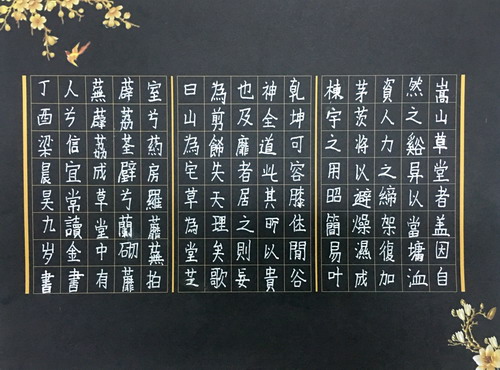 嵩山草堂者盖因自
然之谿昇以當墉洫
資人力之締架復加
茅茨將以避燥濕成
棟宇之用昭簡易叶
乾坤可容膝休閒谷
神全道此其所以貴
也及靡者居之則妄
為剪餙失天理矣歌
曰山為宅草為堂芝
室兮葯房羅蘼蕪拍
薜荔荃壁兮蘭砌蘼
蕪薜荔成草堂中有
人兮信宜常讀金書
丁酉梁晨昊九岁書